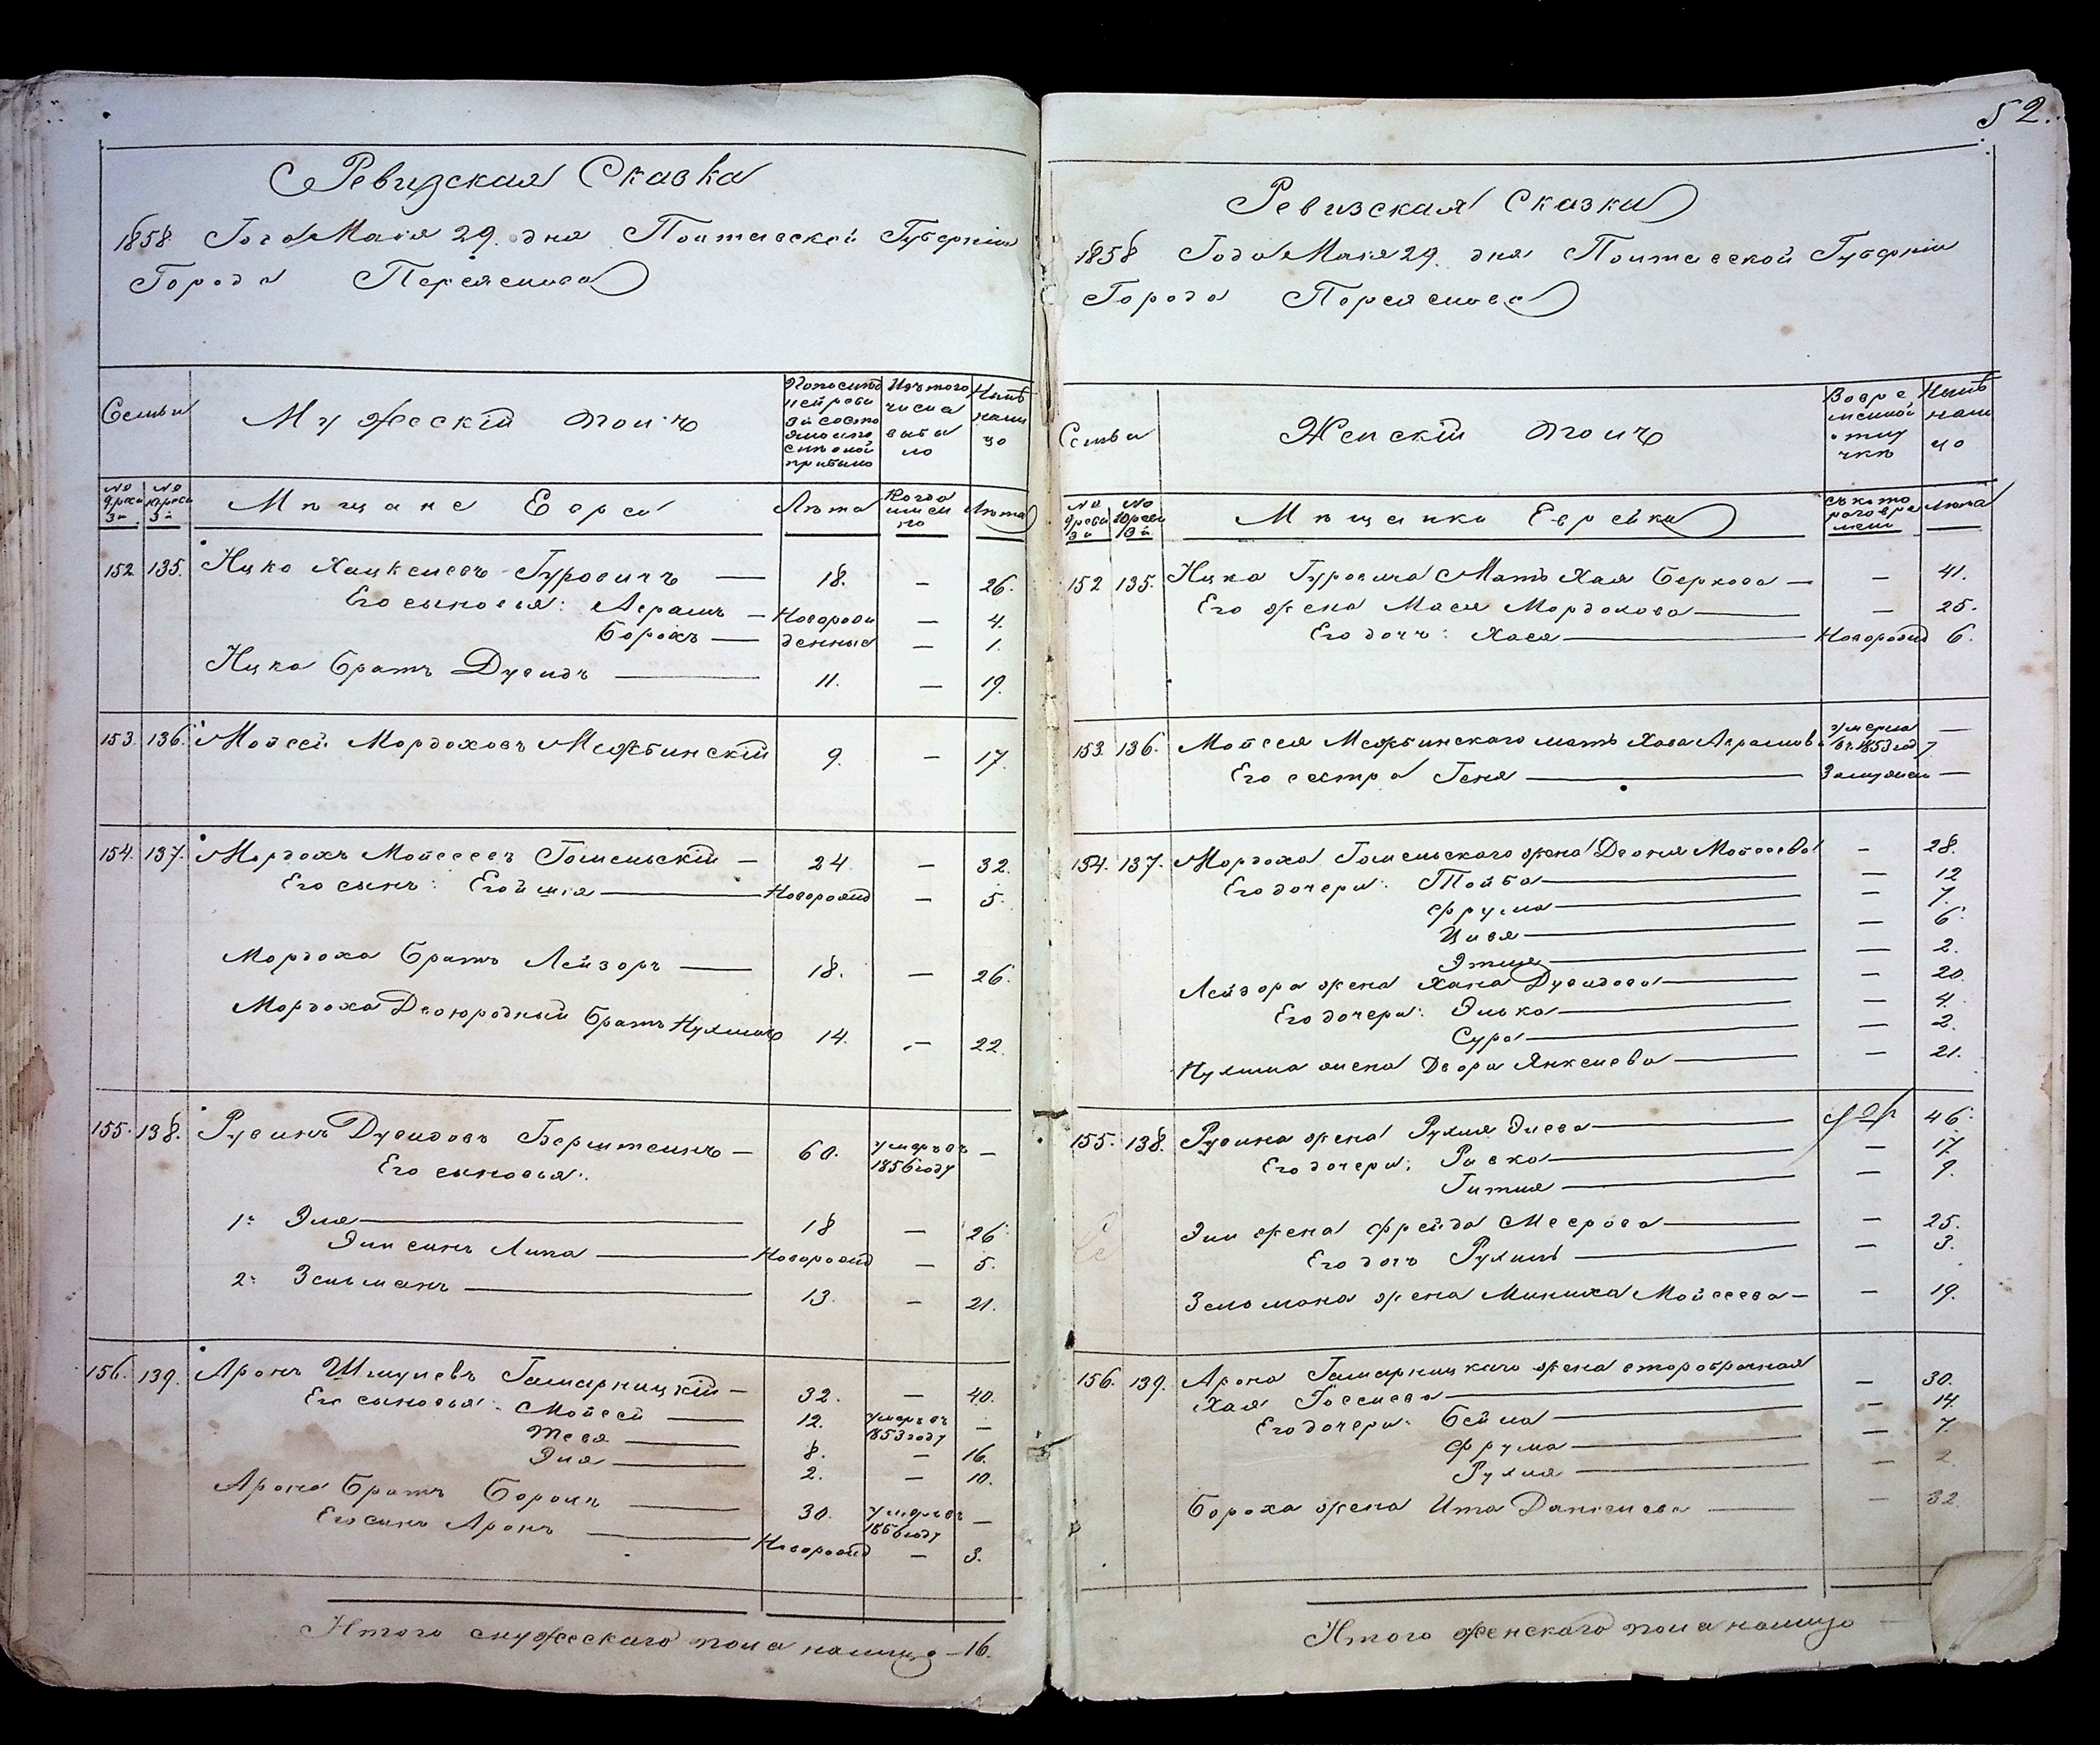 Ревизская Сказка
1858 Года Мая 29. дня Полтавской Губерніи
Города Переяслава
Семьи
Мужескій полъ
По последней реви
зіи состо
яло и по
сле оной
прибыло
Изъ того
числа
выбы
ло
Ныне
на ли
цо
№
9 реви
зіи
№
10 реви
зіи
Мѣщане Евреи
Лѣта
Когда
имен
но
Лѣта
152 135. Ицко Хацкелевъ Гуровичъ — 18. — 26.
Его сыновья: Аврамъ — Новорож — 4.
Борохъ — денные — 1.
Ицка братъ Дувидъ — 11. — 19.
153. 136. Мойсей Мордоховъ Межбинскій 9. — 17.
154. 137. Мордохъ Мойсеевъ Гомельскій — 24 — 32.
Его сынъ: — Новорожд — 5.
Мордоха братъ Лейзоръ — 18. — 26.
Мордоха Двоюродный братъ Нухимъ 14. — 22.
155. 138. Рувинъ Дувидовъ Бернштеинъ — 60. умеръ въ 1856 году —
Его сыновья:
1й Эля — 18 — 26
Эли сынъ Липа — Новорожд — 5.
2й Зельманъ — 13. — 21.
156. 139. Аронъ Шмулевъ Гамарницкій — 32. — 40.
Его сыновья: Мойсей — 12. умеръ въ 1853 году —
Тевя — 8. — 16.
Эля — 2. — 10.
Арона братъ Борохъ — 30. умеръ въ 1856 году —
Его сынъ Аронъ — Новорожд — 3.
Итого мужескаго пола налицо — 16.
52.
Ревизская Сказка
1858 Года Мая 29. дня Полтавской Губерніи
Города Переяслава
Семьи
Женскій полъ
Во вре
менной
отлу
чкѣ
Ныне
на ли
цо
№
9 реви
зіи
№
10 реви
10й
Мѣщанки Еврейки
съ кото
раго вре
мени
Лѣта
152 135. Ицка Гуровича Мать Хая Беркова — — 41.
Его жена Мася Мордохова — — 25.
Его дочь: Хася — Новорожд 6.
153. 136. Мойсея Межбинскаго мать Хава Аврамова умерла въ 1853 году —
Его сестра Геня — Замужем —
154. 137. Мордоха Гомельскаго жена Двоня Мойсеева — 28.
Его дочери: Тойба — — 12
Фрума — — 7.
Цивя — — 6.
Этля — — 2.
Лейзора жена Хана Дувидова — — 20.
Его дочери: Элька — — 4.
Сура — — 2.
Нухима жена Двора Янкелева — — 21.
155. 138. Рувина жена Рухля Элева — 46.
Его дочери: Ривка — — 17.
Гитля — — 9.
Эли жена Фрейда Меерова — — 25.
Его дочь Рухля — — 3.
Зельмана жена Миниха Мойсеева — — 19.
156. 139. Арона Гамарницкаго жена второбрачная
Хая Іоселева — — 30.
Его дочери: Бейла — — 14.
Фрума — — 7.
Рухля — — 2.
Бороха жена Ита Данилева — — 32.
Итого женскаго пола налицо —